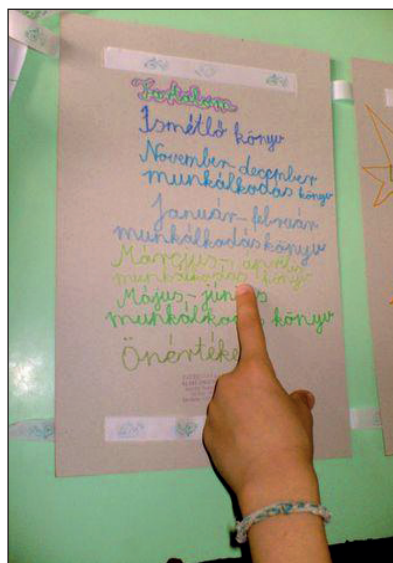 Tartalom
Ismétlő könyv
November-december
munkálkodás könyv
Január-február
munkálkodás könyv
Március-április
munkálkodás könyv
Május-június
munkálkodás könyv